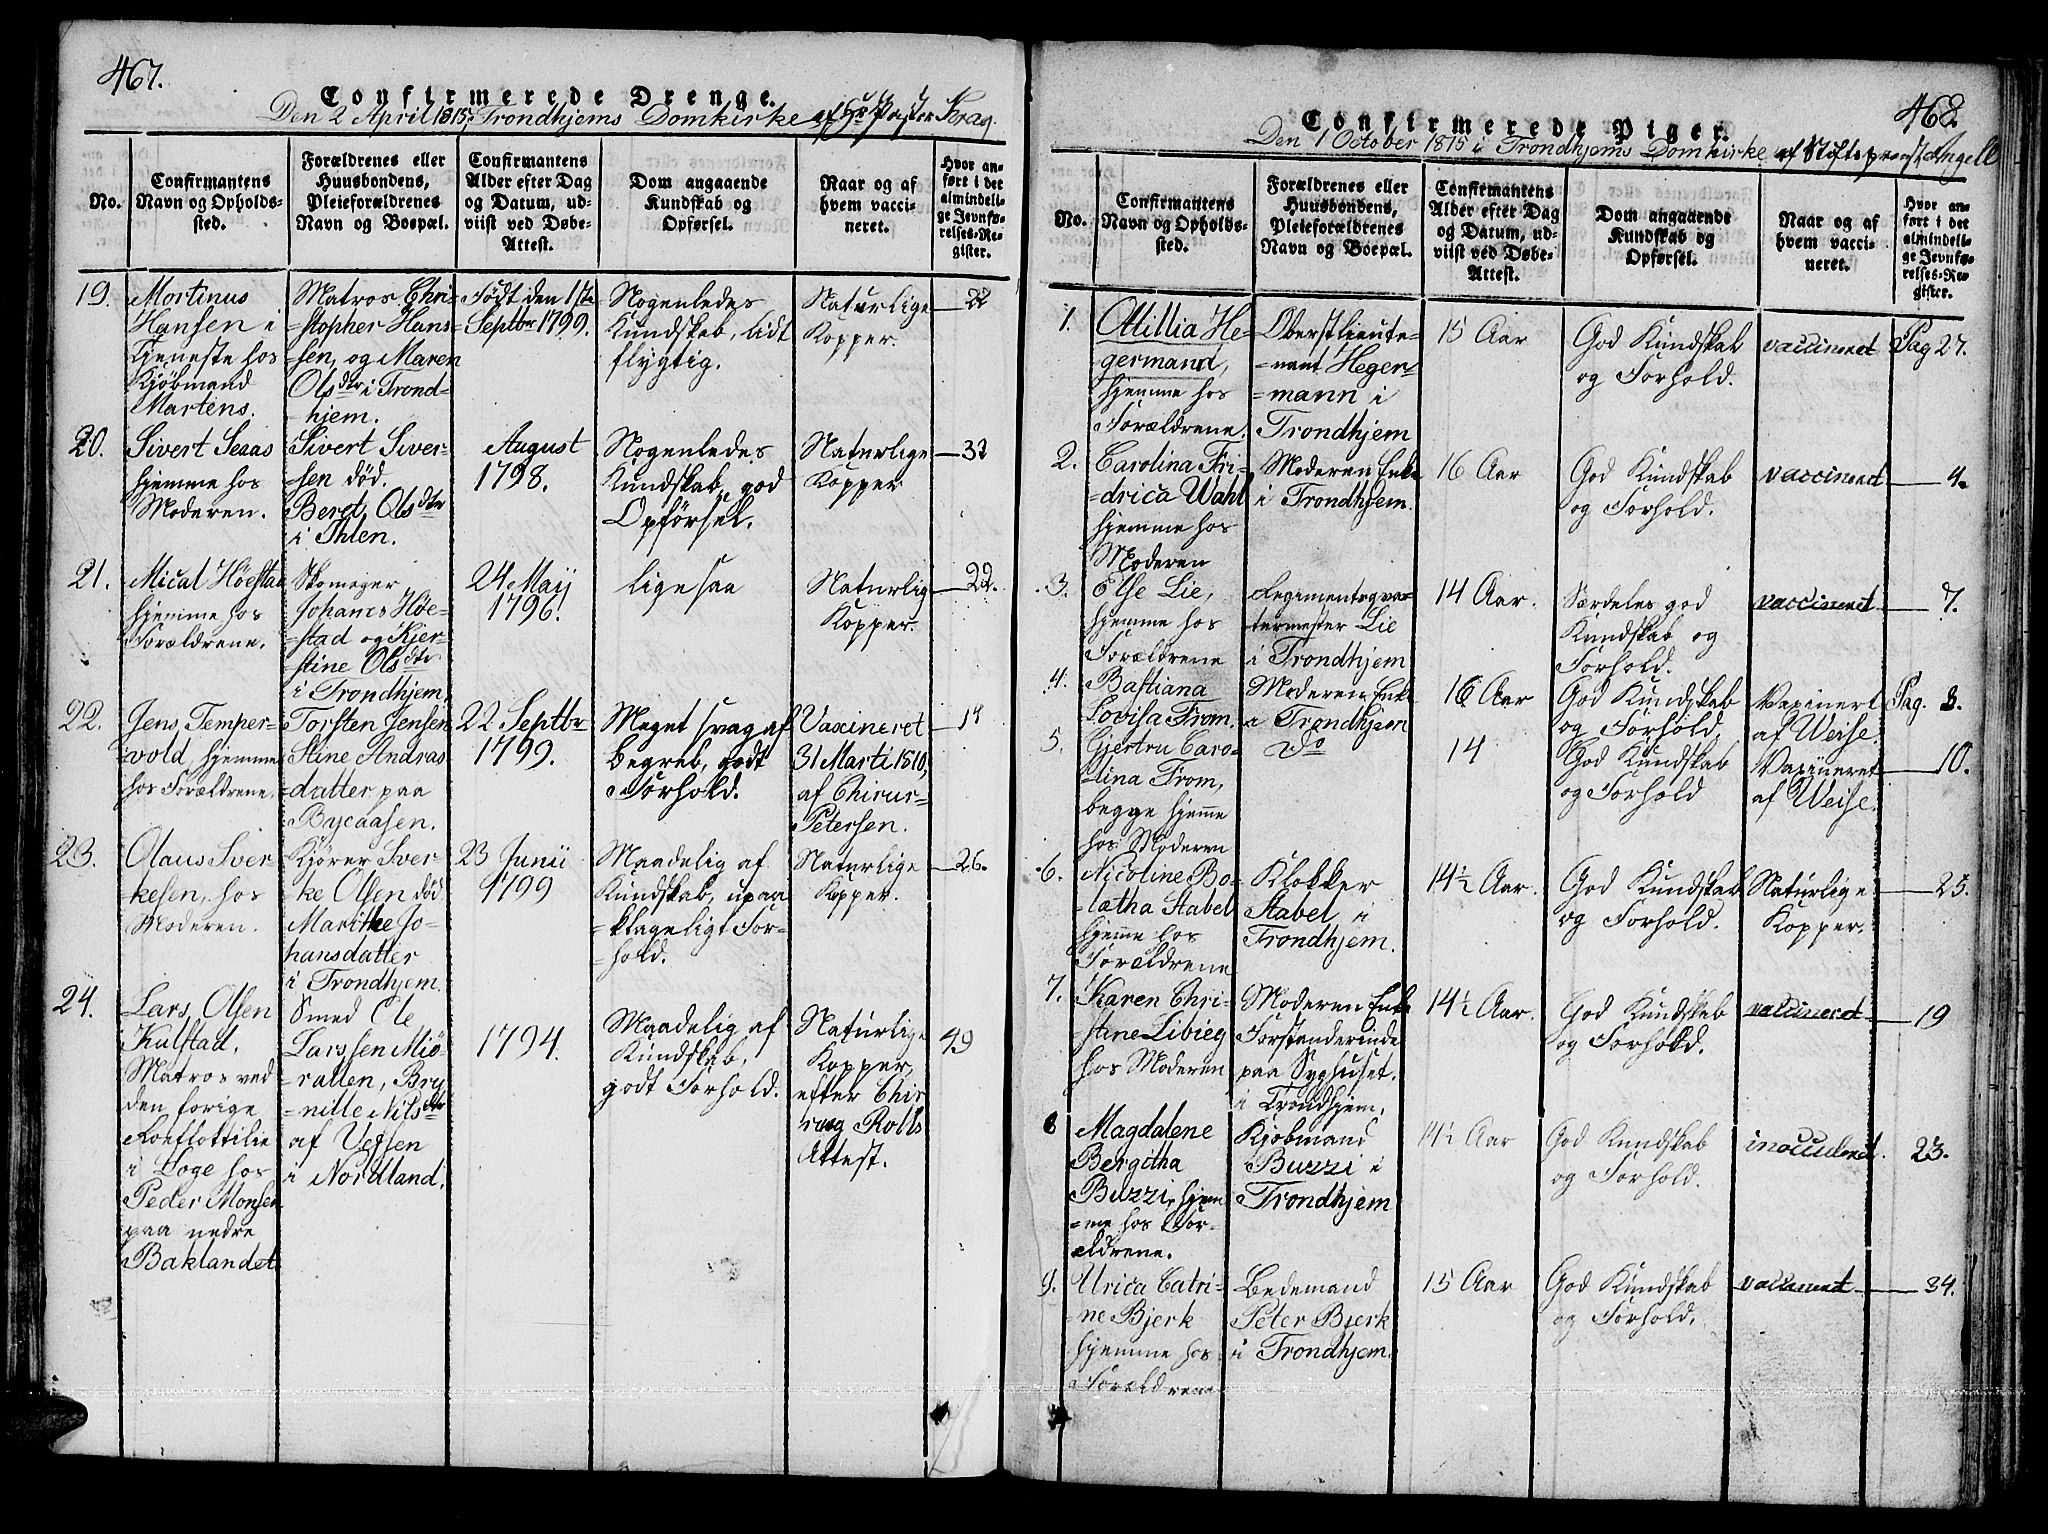 467.
Confirmerede Drenge.
Den 2 April 1815 Trondhjems Domkirke af Hr Pastor Krag.
No.
Confirmantens
Navn og Opholds-
sted.
Forældrenes eller
Huusbondens,
Pleieforældrenes
Navn og Boepæl.
Confirmantens
Alder efter Dag
og Datum, ud-
viist ved Døbe-
Attest.
Dom angaaende
Kundskab og
Opførsel.
Naar og af
hvem vacci-
neret.
Hvor an-
ført i det
almindeli-
ge Jevnfø-
relses-Re-
gister.
19.
Mortinus
Hansen i
Tjeneste hos
Kjøbmand
Martens.
Matros Chri-
stopher Han-
sen, og Maren
Olsdtr i Trond-
hjem.
Født den 17de
Septbr 1799.
Nogenledes
Kundskab, lidt
flygtig.
Naturlige
Kopper.
22
20.
Sivert Sesaas
hjemme hos
Moderen.
Sivert Siver-
sen død.
Beret Olsdtr
i Ihlen.
August
1798.
Nogenledes
Kundskab, god
Opførsel.
Naturlige
Kopper
32
21.
Mical Höestad
hjemme hos
Forældrene.
Skomager
Johanes Höe-
-stad og Kjer-
stine Olsdtr
i Trondhjem
24 Maij
1796.
ligesaa
Naturlig
Kopper.
22.
22.
Jens Temper-
vold, hjemme
hos Forældrene.
Torsten Jensen
Stine Andras
datter paa
Bycaasen.
22 Septbr
1799.
Meget svag af
Begreb, godt
Forhold.
Vaxineret
31 Marti 1810,
af Chirur-
Petersen.
23.
Olaus Sver
kesen, hos
Moderen.
Kjörer Sver-
ke Olsen död
Marithe Jo-
hansdatter
i Trondhjem.
23 Junii
1799
Maadelig af
Kundskab, upaa
-klageligt For-
-hold.
Naturlige
Kopper.
26.
24.
Lars Olsen
Kulstad.
Matros ved
den forige
Roeflottilie
i Loge hos
Peder Monsen
paa nedre
Baklandet
Smed Ole
Larssen Miö-
-ratten, Bry
-nille Nilsdtr
af Vefsen
i Nordland.
1794.
Maadelig af
Kundskab,
godt Forhold.
Naturlige
Kopper,
efter Chir
Rolls
Attest.
49
468.
Confirmerede Piger.
Den 1 October 1815 i Trondhjems Domkirke af Stiftsprovst Angell
No.
Confirmantens
Navn og Opholds-
sted.
Forældrenes eller
Huusbondens,
Pleieforældrenes
Navn og Boepæl.
Confirmantens
Alder efter Dag
og Datum, ud-
viist ved Døbe-
Attest.
Dom angaaende
Kundskab og
Opførsel.
Naar og af
hvem vacci-
neret.
Hvor an-
ført i det
almindeli-
ge Jevnfø-
relses-Re-
gister.
1.
Ottillia He-
germand,
hjemme hos
Forældrene.
Oberstlieute-
-nant Heger-
=mann i
Trondhjem
15 Aar
God Kundskab
og Forhold.
vaccineret
Pag 27.
2.
Carolina Fri-
-drica Wahl
hjemme hos
Moderen
Moderen Enke
i Trondhjem.
16 Aar
God Kundskab
og Forhold.
vaccineret
4.
3.
Else Lie,
hjemme hos
Forældrene
Regimentsqvar-
termester Lie
i Trondhjem
14 Aar.
Særdeles god
Kundskab og
Forhold.
vaccineret
7.
4.
Bastiana
Lovisa From.
Moderen Enke
i Trondhjem
16 Aar
God Kundskab
og Forhold,
Vaxinert
af Weise.
Pag. 8.
5.
Gjertru Caro-
lina From,
begge hjemme
hos Moderen
Do
14
God Kundskab
og Forhold
Vaxineret
af Weise.
10.
6.
Nicoline Bo-
-latha Stabel
hjemme hos
Forældrene
Klokker
Stabel i
Trondhjem.
14½ Aar.
God Kundskab
og Forhold.
Naturlige
Kopper.
25.
7.
Karen Chri-
stane Libieg
hos Moderen
Moderen Enke
Forstanderinde
paa Syghuset.
i Trondhjem.
14½ Aar.
God Kundskab
og Forhold.
vaccineret
19
8
Magdalene
Bergitha
Buzzi, hjem
=me hos For-
ældrene.
Kjöbmand
Buzzi i
Trondhjem
14½ Aar
God Kundskab
og Forhold.
inoculeret.
23.
9.
Urica Catri-
-ne Bjerk
hjemme hos
Forældrene
Bedemand
Peter Bjerk
i Trondhjem.
15 Aar
God Kundskab
og Forhold.
vaccineret
34.